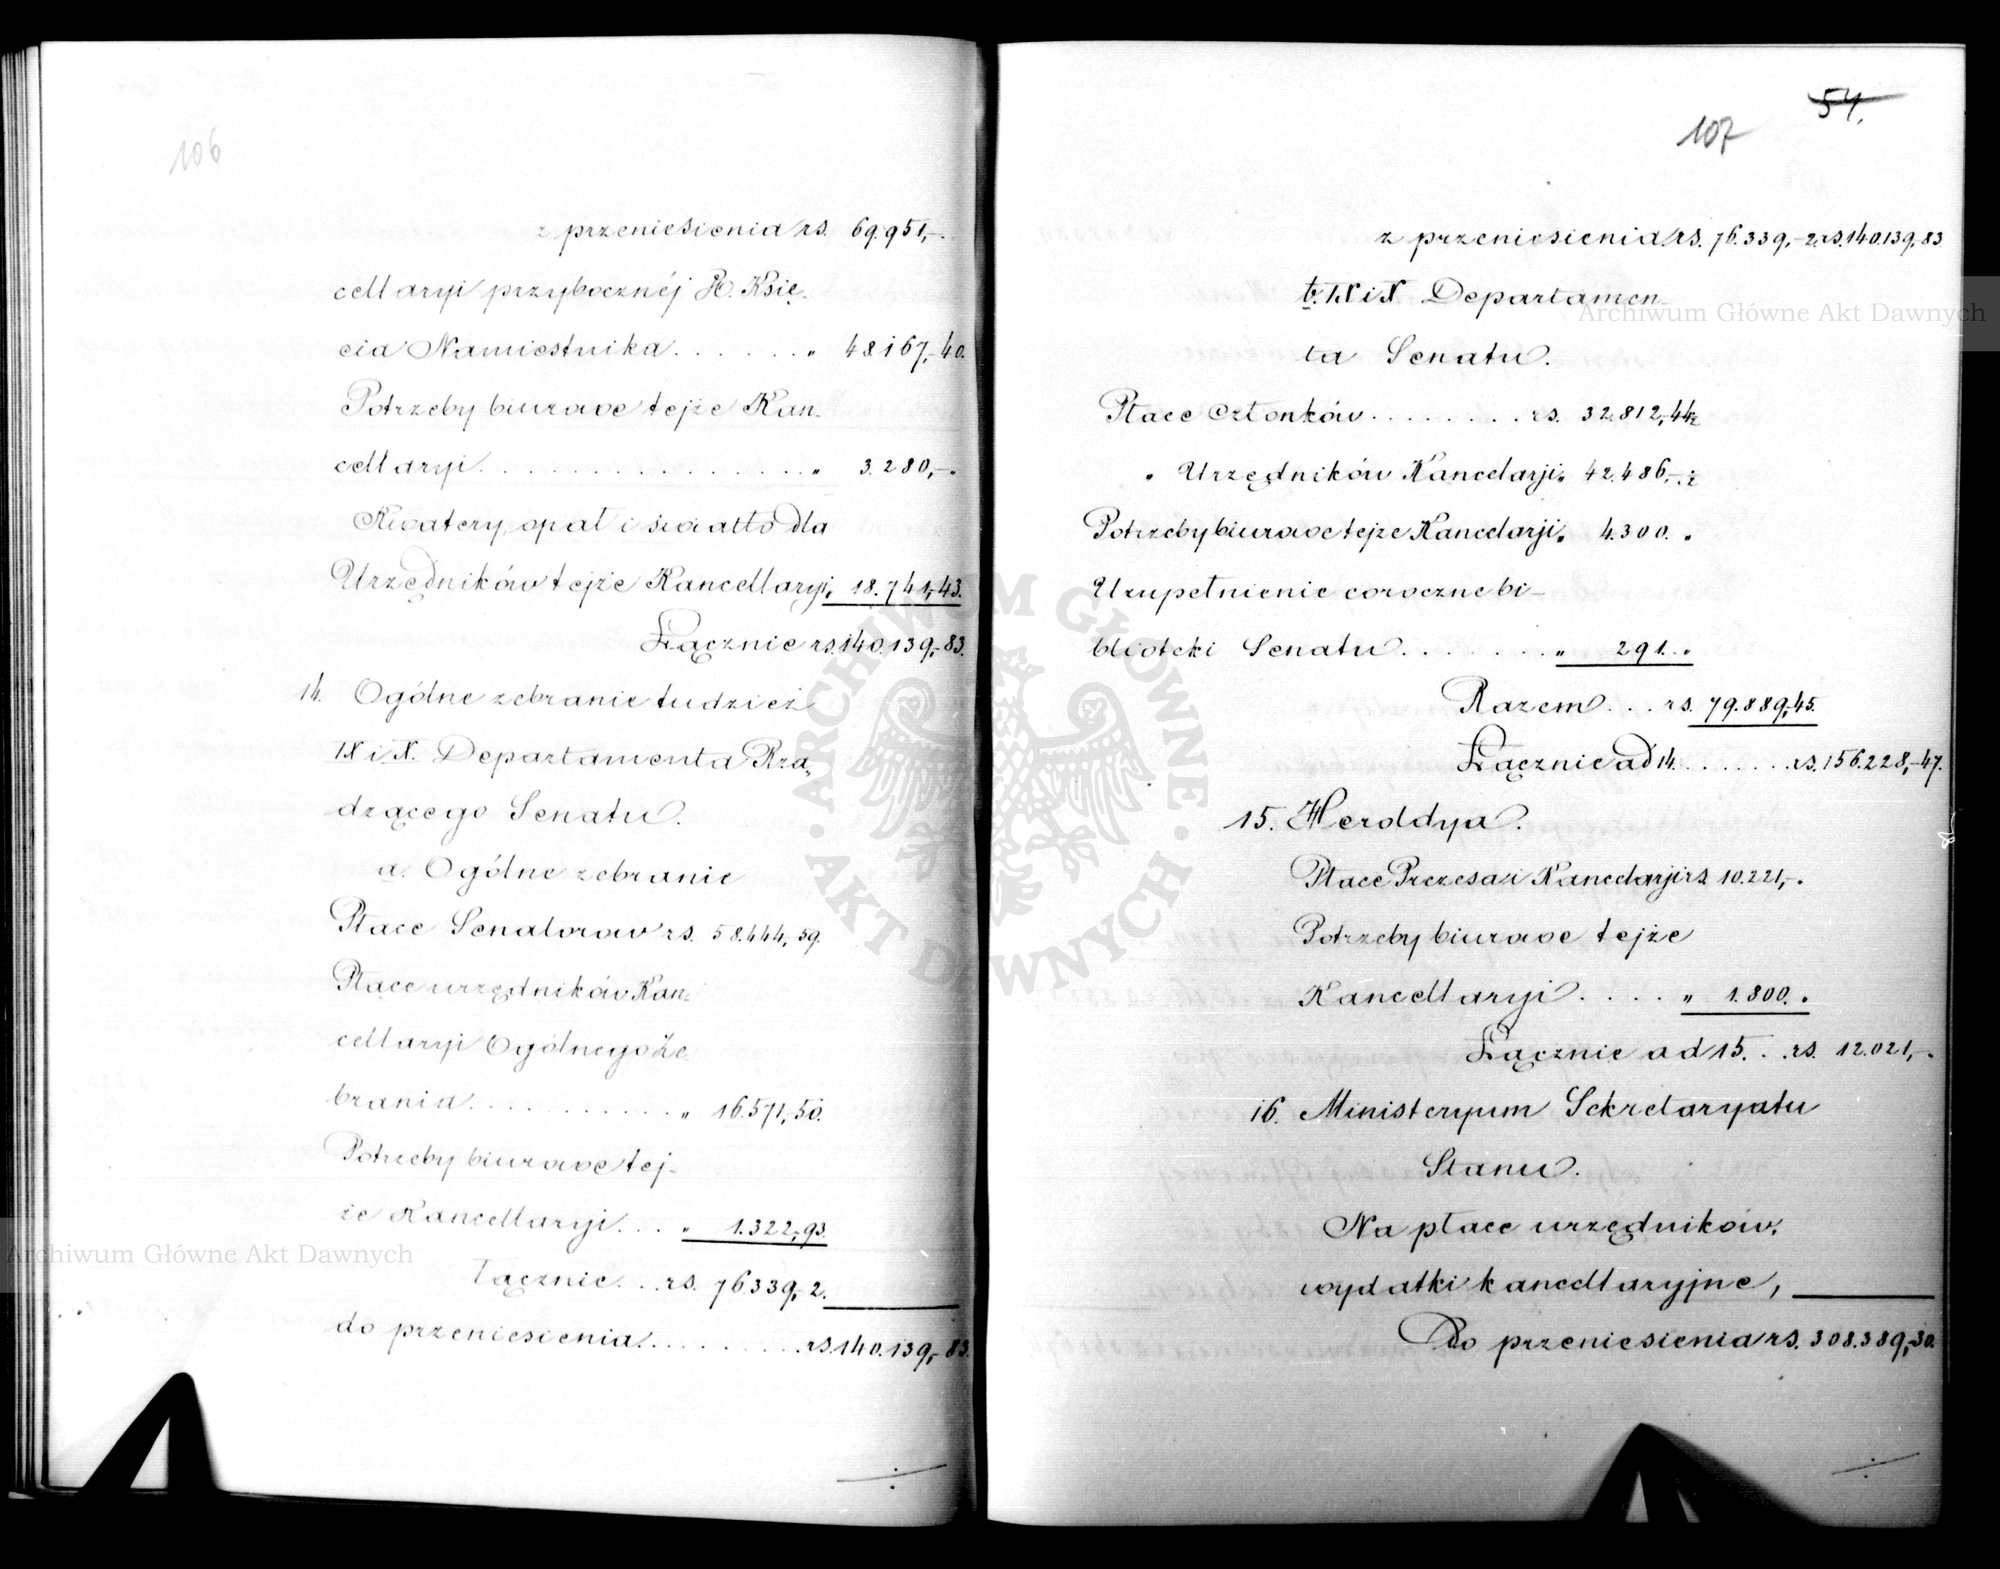 106
z przeniesienia rs. 69.951,-.
cellaryi przybocznéj H. Księ.
cia Namiestnika . . . . . . . „ 48.167,-40.
Potrzeby biurowe tejże Kan-
cellaryi . . . . . . . . . . . . . . . . „ 3.280,-.
Kwatery, opał i światło dla
Urzędników tejże Kancellaryi „ 18.741,-43.
Łącznie rs. 140.139,-83.
14. Ogólne zebranie tudzież
IX i X. Departamenta Rzą„
dzącego Senatu.
a. Ogólne zebranie
Płace Senatorow rs. 58.444,-59.
Płace urzędników Kan-
cellaryi Ogólnego Ze
brania . . . . . . . . . . . „ 16.571,-50.
Potrzeby biurowe tej-
że Kancellaryi . . . „ 1.322,-93.
Łącznie . . . rs. 76339,-2.
do przeniesienia . . . . . . . . . . rs. 140.139,-83.
54.
107
z przeniesienia rs. 76.339,-2, rs. 140.139,-83
b. IX i X Departamen-
ta Senatu.
Płace Członków . . . . . . . . rs. 32.812,-44½
„ Urzędników Kancelarji „ 42.486,-.½
Potrzeby biurowe tejże Kancelarji „ 4.300. „
Uzupełnienie coroczne bi-
blioteki Senatu . . . . . . . „ 291. „
Razem . . . rs. 79.889,-45.
Łącznie ad 14. . . . . . . . rs. 156.228,-47.
15. Heroldya.
Płace Prezesa i Kancelarji rs. 10.221,-.
Potrzeby biurowe tejże
Kancellaryi . . . . „ 1.800. „
Łącznie ad 15. . . rs. 12.021,-.
16. Ministeryum Sekretaryatu
Stanu.
Na płace urzędników,
wydatki kancellaryjne,
Do przeniesienia rs. 308.389,-30.
Archiwum Główne Akt Dawnych
Archiwum Główne Akt Dawnych
ARCHIWUM GŁÓWNE · AKT DAWNYCH ·